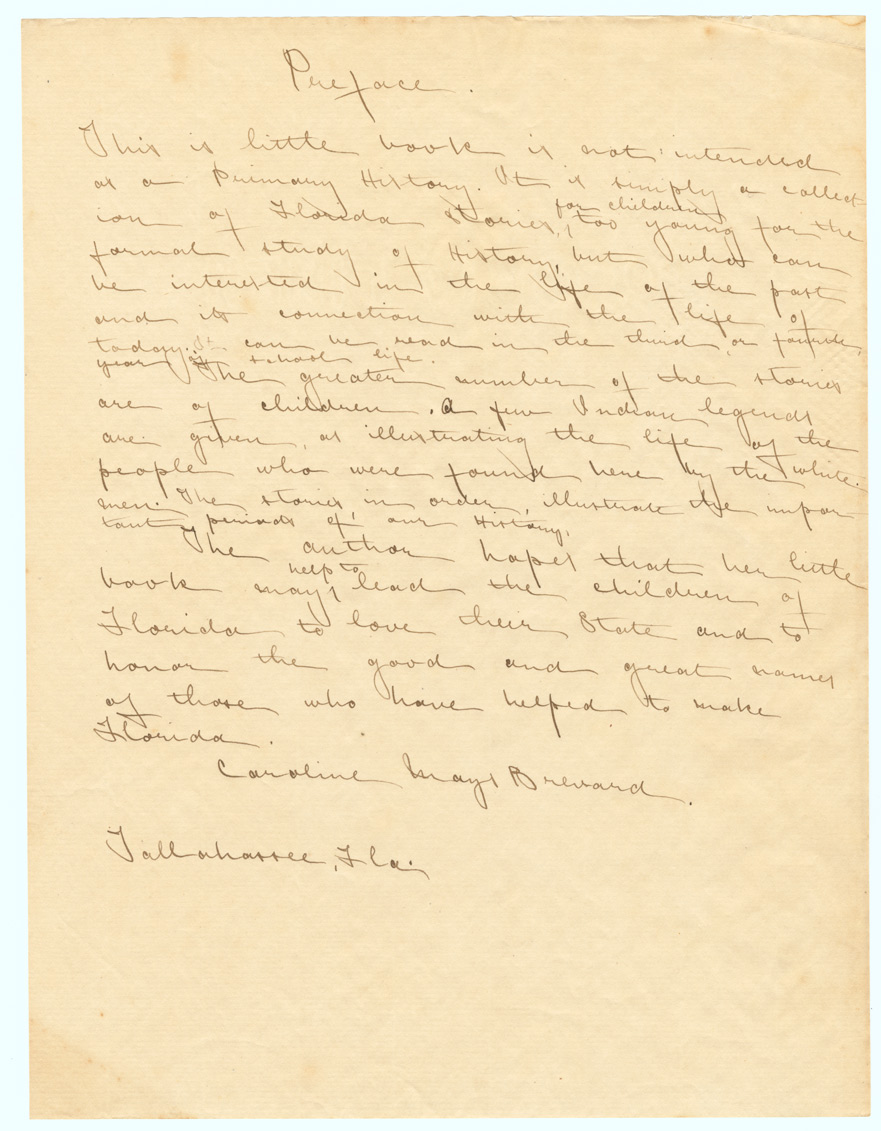 Preface.
This is little book is not intended
as a Primary History. It is simply a collect-
for children
ion of Florida Stories, too young for the
formal study of History, but who can
be interested in the life of the past
and its connection with the life of
today. It can be read in the third, or fourth,
year of school life.
The greater number of the stories
are of children. A few Indian legends
are given, as illustrating the life of the
people who were found here by the white
men. The stories, in order, illustrate the impor
tant periods of our History.
The author hopes that her little
help to
book may lead the children of
Florida to love their State and to
honor the good and great names
of those who have helped to make
Florida.
Caroline Mays Brevard.
Tallahassee, Fla.